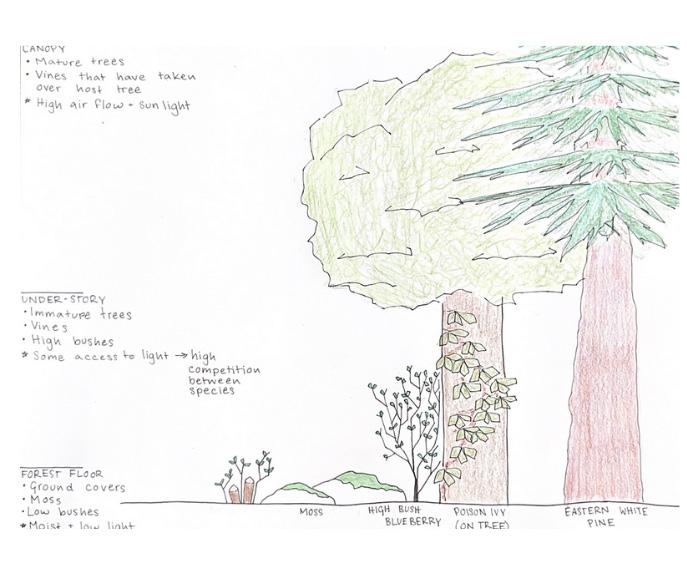 CANOPY
• Mature trees
• Vines that have taken
over host tree
* High air flow + sunlight
UNDER-STORY
• Immature trees
• Vines
• High bushes
* Some access to light → high
competition
between
species
FOREST FLOOR
• Ground covers
• Moss
• Low bushes
* Moist + low light
MOSS
HIGH BUSH
BLUEBERRY
POISON IVY
(ON TREE)
EASTERN WHITE
PINE